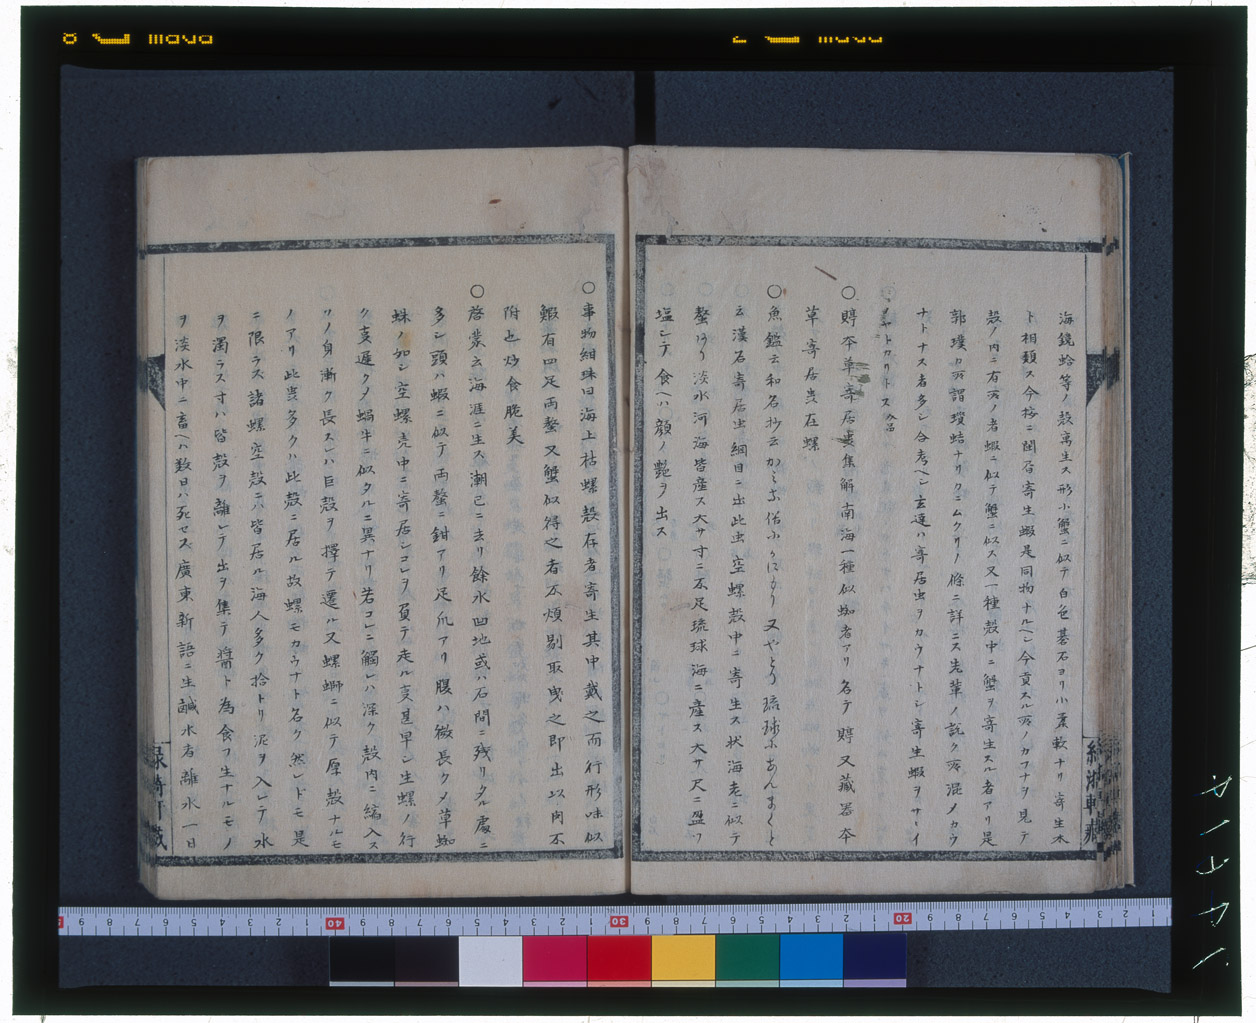 海鏡蛤等ノ殻寓生ス形小蟹ニ似テ白色碁石ヨリ小柔軟ナリ寄生木
ト相類ス今按ニ閩書寄生蝦是同物ナルヘシ今貢スル所ノカフナヲ見テ
殻ノ内ニ有所ノ者蝦ニ似テ蟹ニ似ス又一種殻中ニ蟹ヲ寄生スル者アリ是
郭璞カ所謂璅蛣ナリクニムクリノ條ニ詳ニス先輩ノ説ク所混メカウ
ナトナス者多シ合考ヘシ玄達ハ寄居虫ヲカウナトシ寄生蝦ヲサヽイ
ノシヤトカリトス
〇䝼本草寄居蟲集解南海一種似蜘者アリ名テ䝼又蔵器本
草寄居蟲在螺
〇魚鑑云和名抄云かみな俗ふかにもり又やとり琉球ふあんまくと
云漢名寄居虫綱目ニ出此虫空螺殻中ニ寄生ス状海老ニ似テ
螯アリ淡水河海皆産ス大サ寸ニ不足琉球海ニ産ス大サ尺ニ盈フ
塩シテ食ヘハ顔ノ艶ヲ出ス
〇事物紺珠曰海上枯螺殻存者寄生其中戴之而行形味似
蝦有四足両螯又蟹似得之者不煩剔取曳之即出以肉不
附也炒食脆美
〇啓蒙云海涯ニ生ス潮已ニ去リ餘水凹地或ハ石間ニ残リタル處ニ
多シ頭ハ蝦ニ似テ両螯ニ鉗アリ足爪アリ腹ハ微長クメ草蜘
蛛ノ如シ空螺売中ニ寄居シコレヲ負テ走ル亥甚早シ生螺ノ行
ク亥遅クメ蝸牛ニ似タルニ異ナリ若コレニ觸レハ深ク殻内ニ縮入ス
ソノ身漸ク長スレハ巨殻ヲ擇テ遷ル又螺螄ニ似テ厚殻ナルモ
ノアリ此蟲多クハ此殻ニ居ル故螺モカウナト名ク然レトモ是
ニ限ラス諸螺空殻ニハ皆居ル海人多ク拾トリ泥ヲ入レテ水
ヲ濁ラス寸ハ皆殻ヲ離レテ出ヲ集テ醤ト為食フ生ナルモノ
ヲ淡水中ニ畜ヘハ数日ハ死セス廣東新語ニ生鹹水者離水一日
緑漪軒蔵